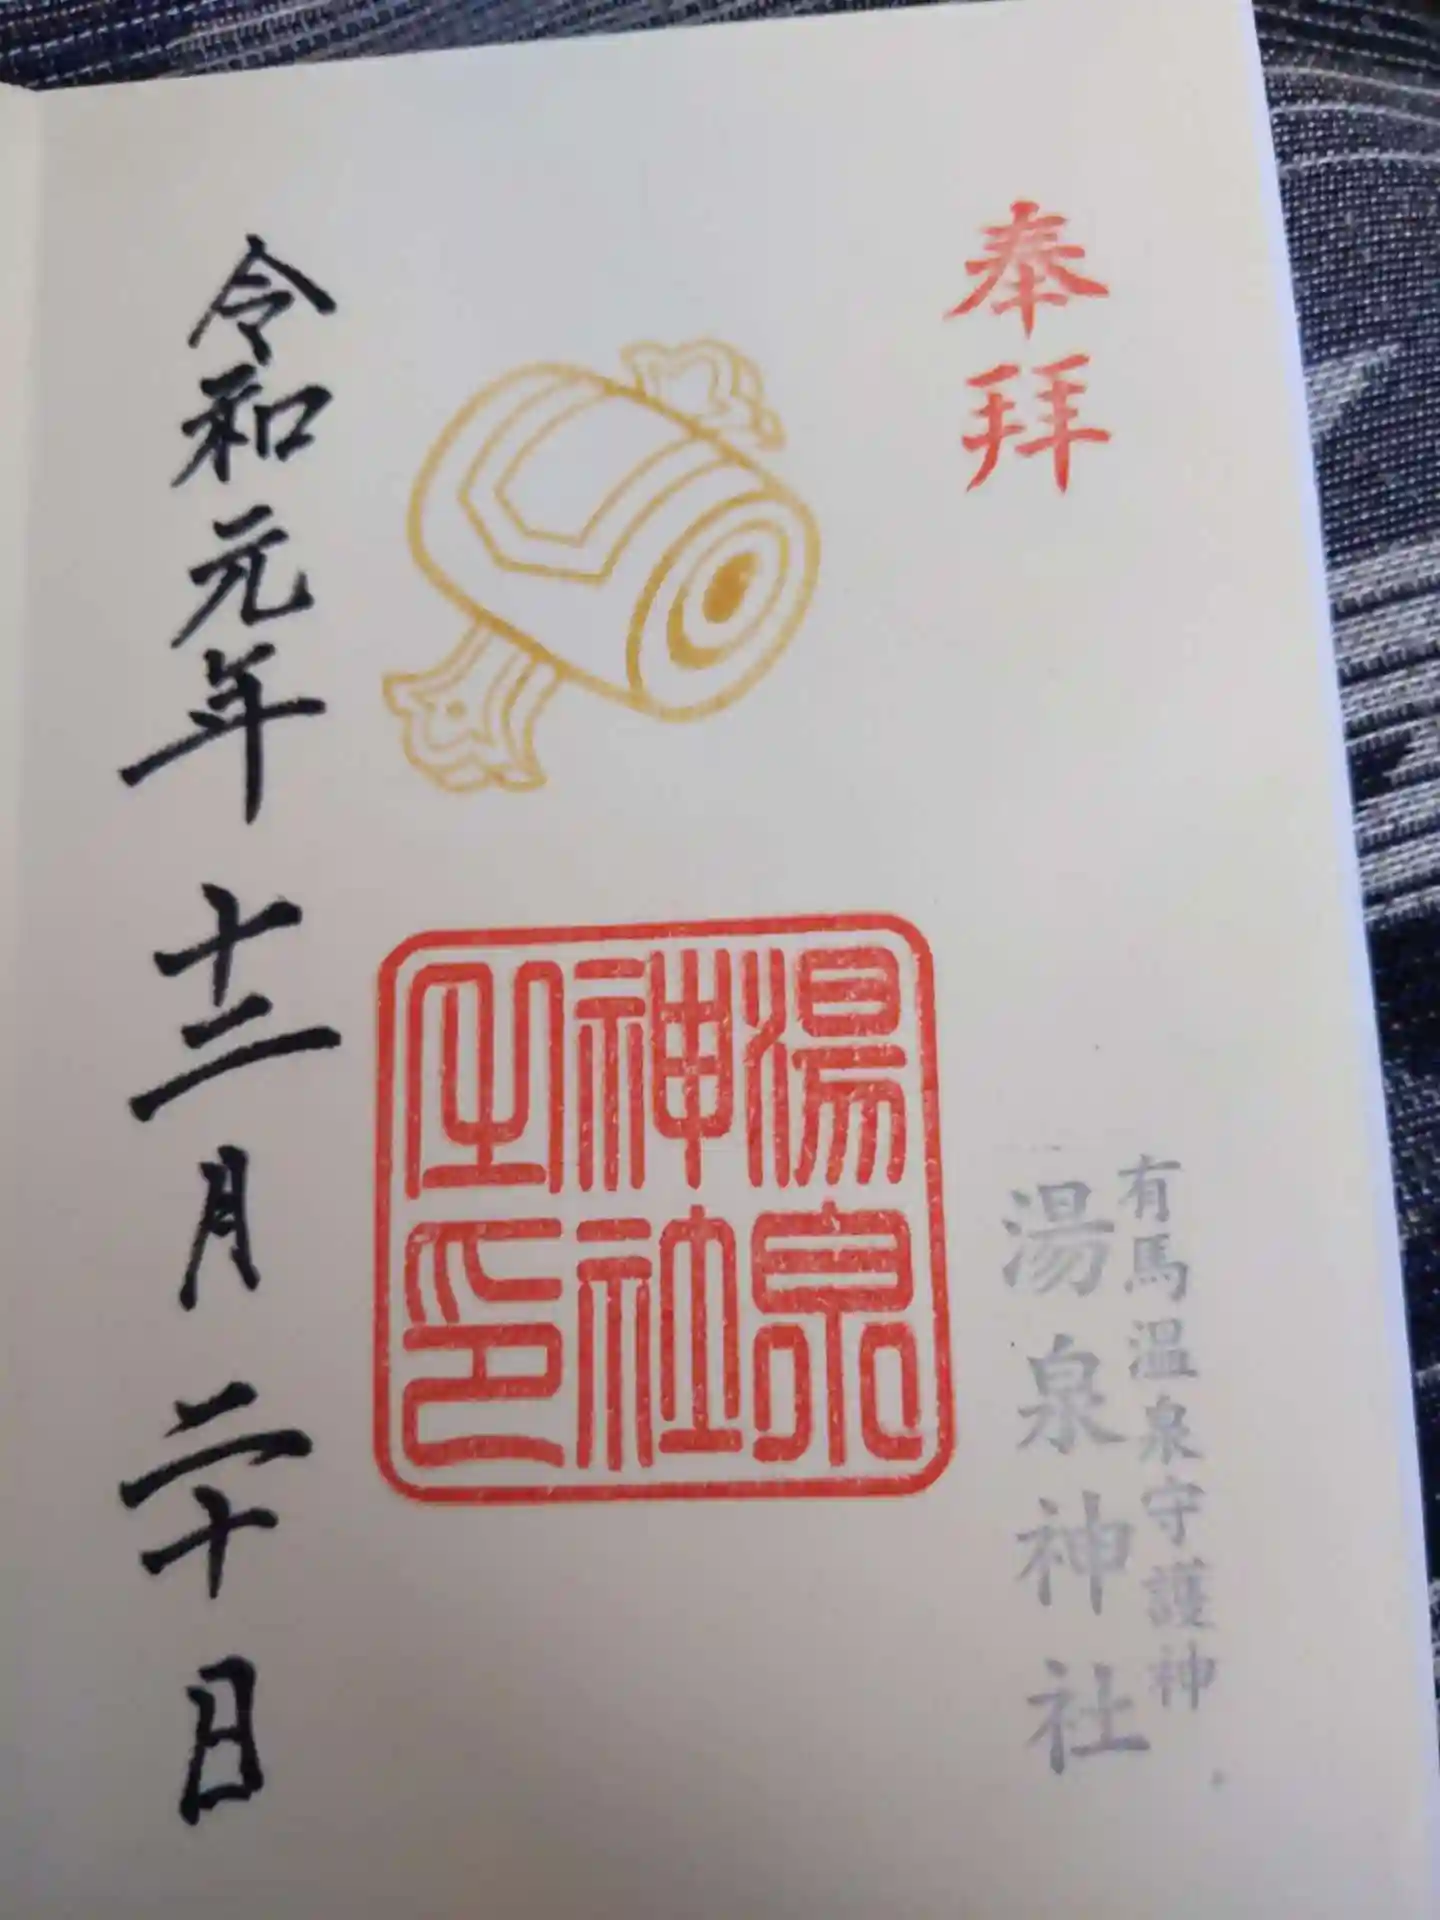 奉拝
有馬温泉守護神
湯泉神社
湯泉
神社
之印
令和元年十二月二十日